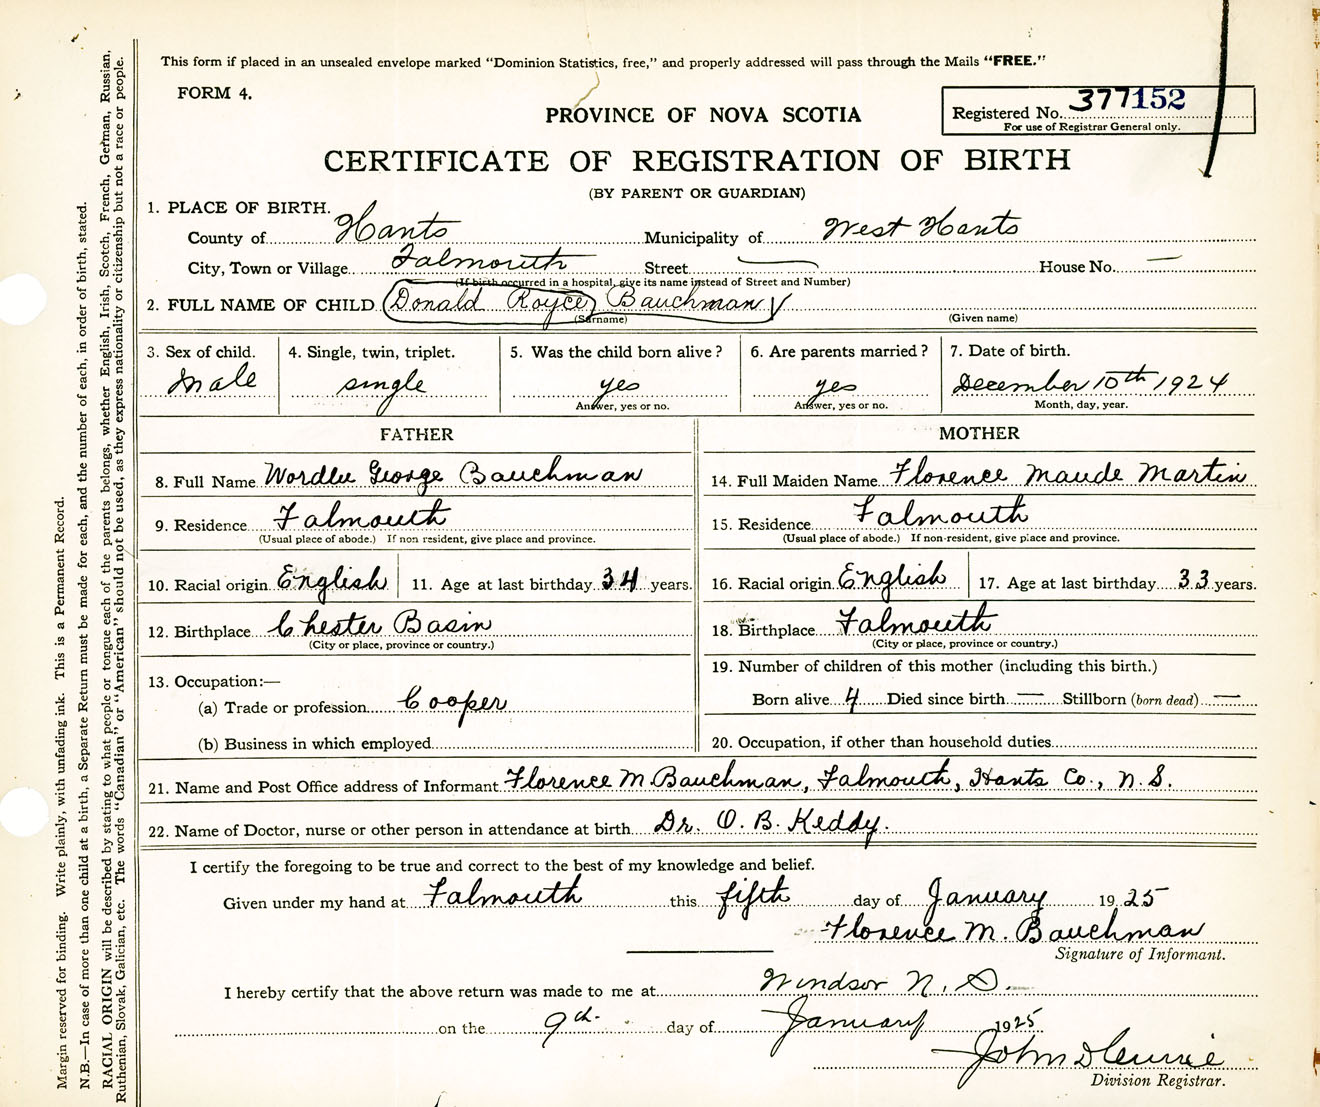 This form if placed in an unsealed envelope marked "Dominion Statistics, free," and properly addressed will pass through the Mails "FREE."
FORM 4.
PROVINCE OF NOVA SCOTIA
Registered No. 377152
For use of Registrar General only.
CERTIFICATE OF REGISTRATION OF BIRTH
(BY PARENT OR GUARDIAN)
1. PLACE OF BIRTH.
County of Hants Municipality of West Hants
City, Town or Village Falmouth Street — House No. —
(If birth occurred in a hospital, give its name instead of Street and Number)
2. FULL NAME OF CHILD Donald Royce Bauchman
(Surname) (Given name)
3. Sex of child. 4. Single, twin, triplet. 5. Was the child born alive? 6. Are parents married? 7. Date of birth.
Male single yes yes December 10th 1924
Answer, yes or no. Answer, yes or no. Month, day, year.
FATHER MOTHER
8. Full Name Wordlee George Bauchman 14. Full Maiden Name Florence Maude Martin
9. Residence Falmouth 15. Residence Falmouth
(Usual place of abode.) If non resident, give place and province. (Usual place of abode.) If non-resident, give place and province.
10. Racial origin English 11. Age at last birthday 34 years. 16. Racial origin English 17. Age at last birthday 33 years.
12. Birthplace Chester Basin 18. Birthplace Falmouth
(City or place, province or country.) (City or place, province or country.)
13. Occupation:— 19. Number of children of this mother (including this birth.)
(a) Trade or profession Cooper Born alive 4 Died since birth — Stillborn (born dead) —
(b) Business in which employed 20. Occupation, if other than household duties
21. Name and Post Office address of Informant Florence M. Bauchman, Falmouth, Hants Co., N.S.
22. Name of Doctor, nurse or other person in attendance at birth Dr. O. B. Keddy.
I certify the foregoing to be true and correct to the best of my knowledge and belief.
Given under my hand at Falmouth this fifth day of January 1925
Florence M. Bauchman
Signature of Informant.
I hereby certify that the above return was made to me at Windsor N. S.
on the 9th day of January 1925
John D Currie
Division Registrar.
Margin reserved for binding. Write plainly, with unfading ink. This is a Permanent Record.
N.B.—In case of more than one child at a birth, a Separate Return must be made for each, and the number of each, in order of birth, stated.
RACIAL ORIGIN will be described by stating to what people or tongue each of the parents belongs, whether English, Irish, Scotch, French, German, Russian,
Ruthenian, Slovak, Galician, etc. The words "Canadian" or "American" should not be used, as they express nationality or citizenship but not a race or people.